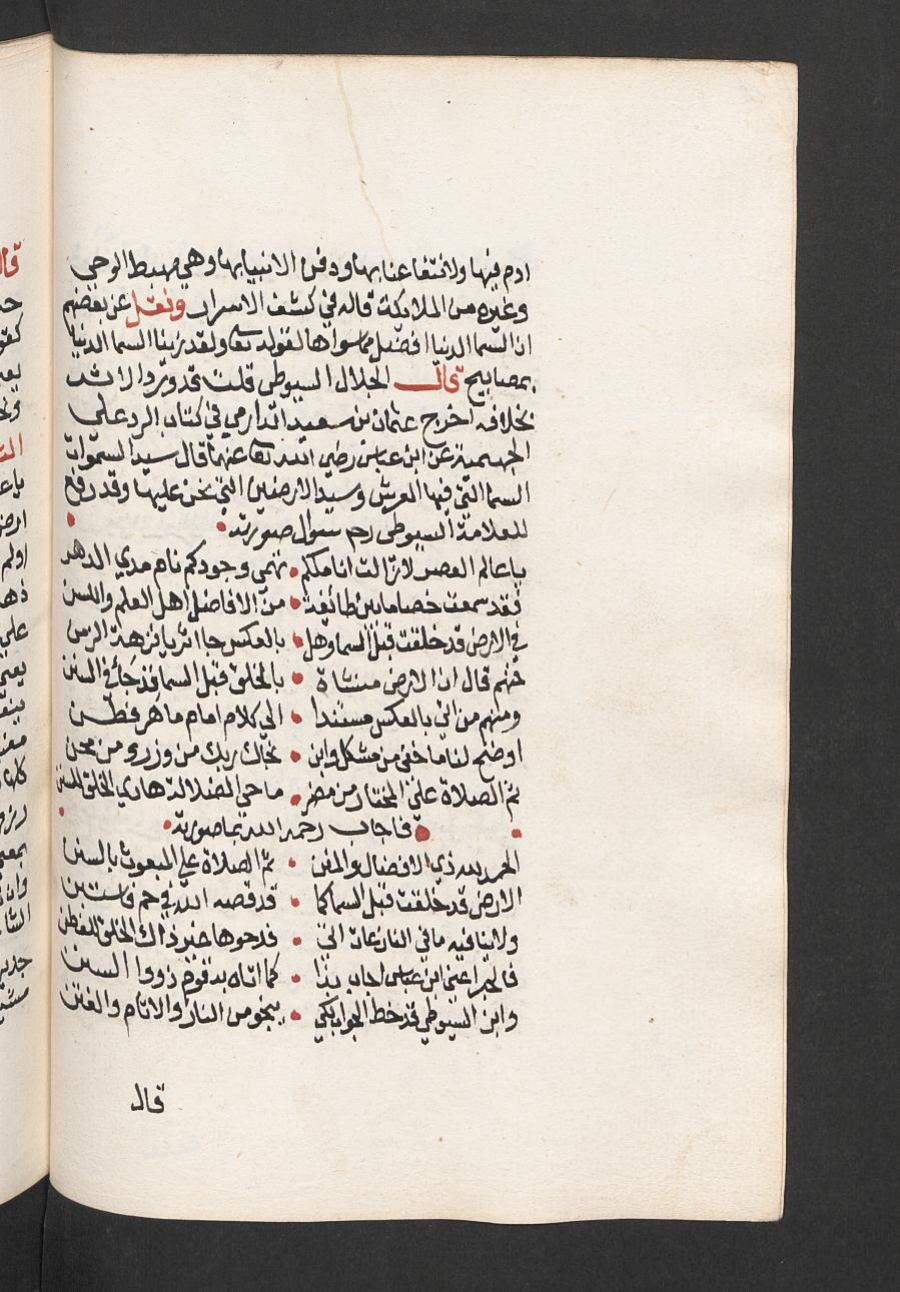 ادم فيها ولانتفاعنا بها ودفن الانبيا بها وهي مهبط الوحي
وغيره من الملائكة قاله في كشف الاسرار ونقل عن بعضهم
ان السما الدنيا افضل مما سواها لقوله تعا ولقد زينا السما الدنيا
بمصابيح قال الجلال السيوطي قلت قد ورد الاثر
بخلافه اخرج عثمان بن سعيد الدارمي في كتاب الرد على
الجهمية عن ابن عباس رضي الله تعا عنهما قال سيد السموات
السما التي فيها العرش وسيد الارضين التي نحن عليها وقد رفع
للعلامة السيوطي رحم سوال صورته
يا عالم العصر لا زالت اناملكم • تهمي وجودكم نام مدي الدهر
فقد سمعت خصاما بين طائفة • من الافاضل اهل العلم واللسن
في الارض قد خلقت قبل السما وهل • بالعكس جا اثر يا نزهة الزمن
فمنهم قال ان الارض منشاة • بالخلق قبل السما قد جا في السنن
ومنهم من اتي بالعكس مستندا • الي كلام امام ماهر فطن
اوضح لنا ما خفي من مشكل وابن • نجاك ربك من وزر ومن محن
ثم الصلاة علي المختار من مضر • ماحي الضلالة هادي الخلق للسنن
فاجاب رحمه الله بما صورته
الحمد لله ذي الافضال والمنن • ثم الصلاة علي المبعوث بالسنن
الارض قد خلقت قبل السما كما • قد قصه الله في حم فاستبن
ولا ينافيه ما في النازعات اتي • فدحوها غير ذاك الخلق للفطن
فالحبر اعني ابن عباس اجاب بذا • كما اتاه به قوم ذووا السنن
وابن السيوطي قد خط الجواب لكي • ينجو من النار والاثام والفتن
قال